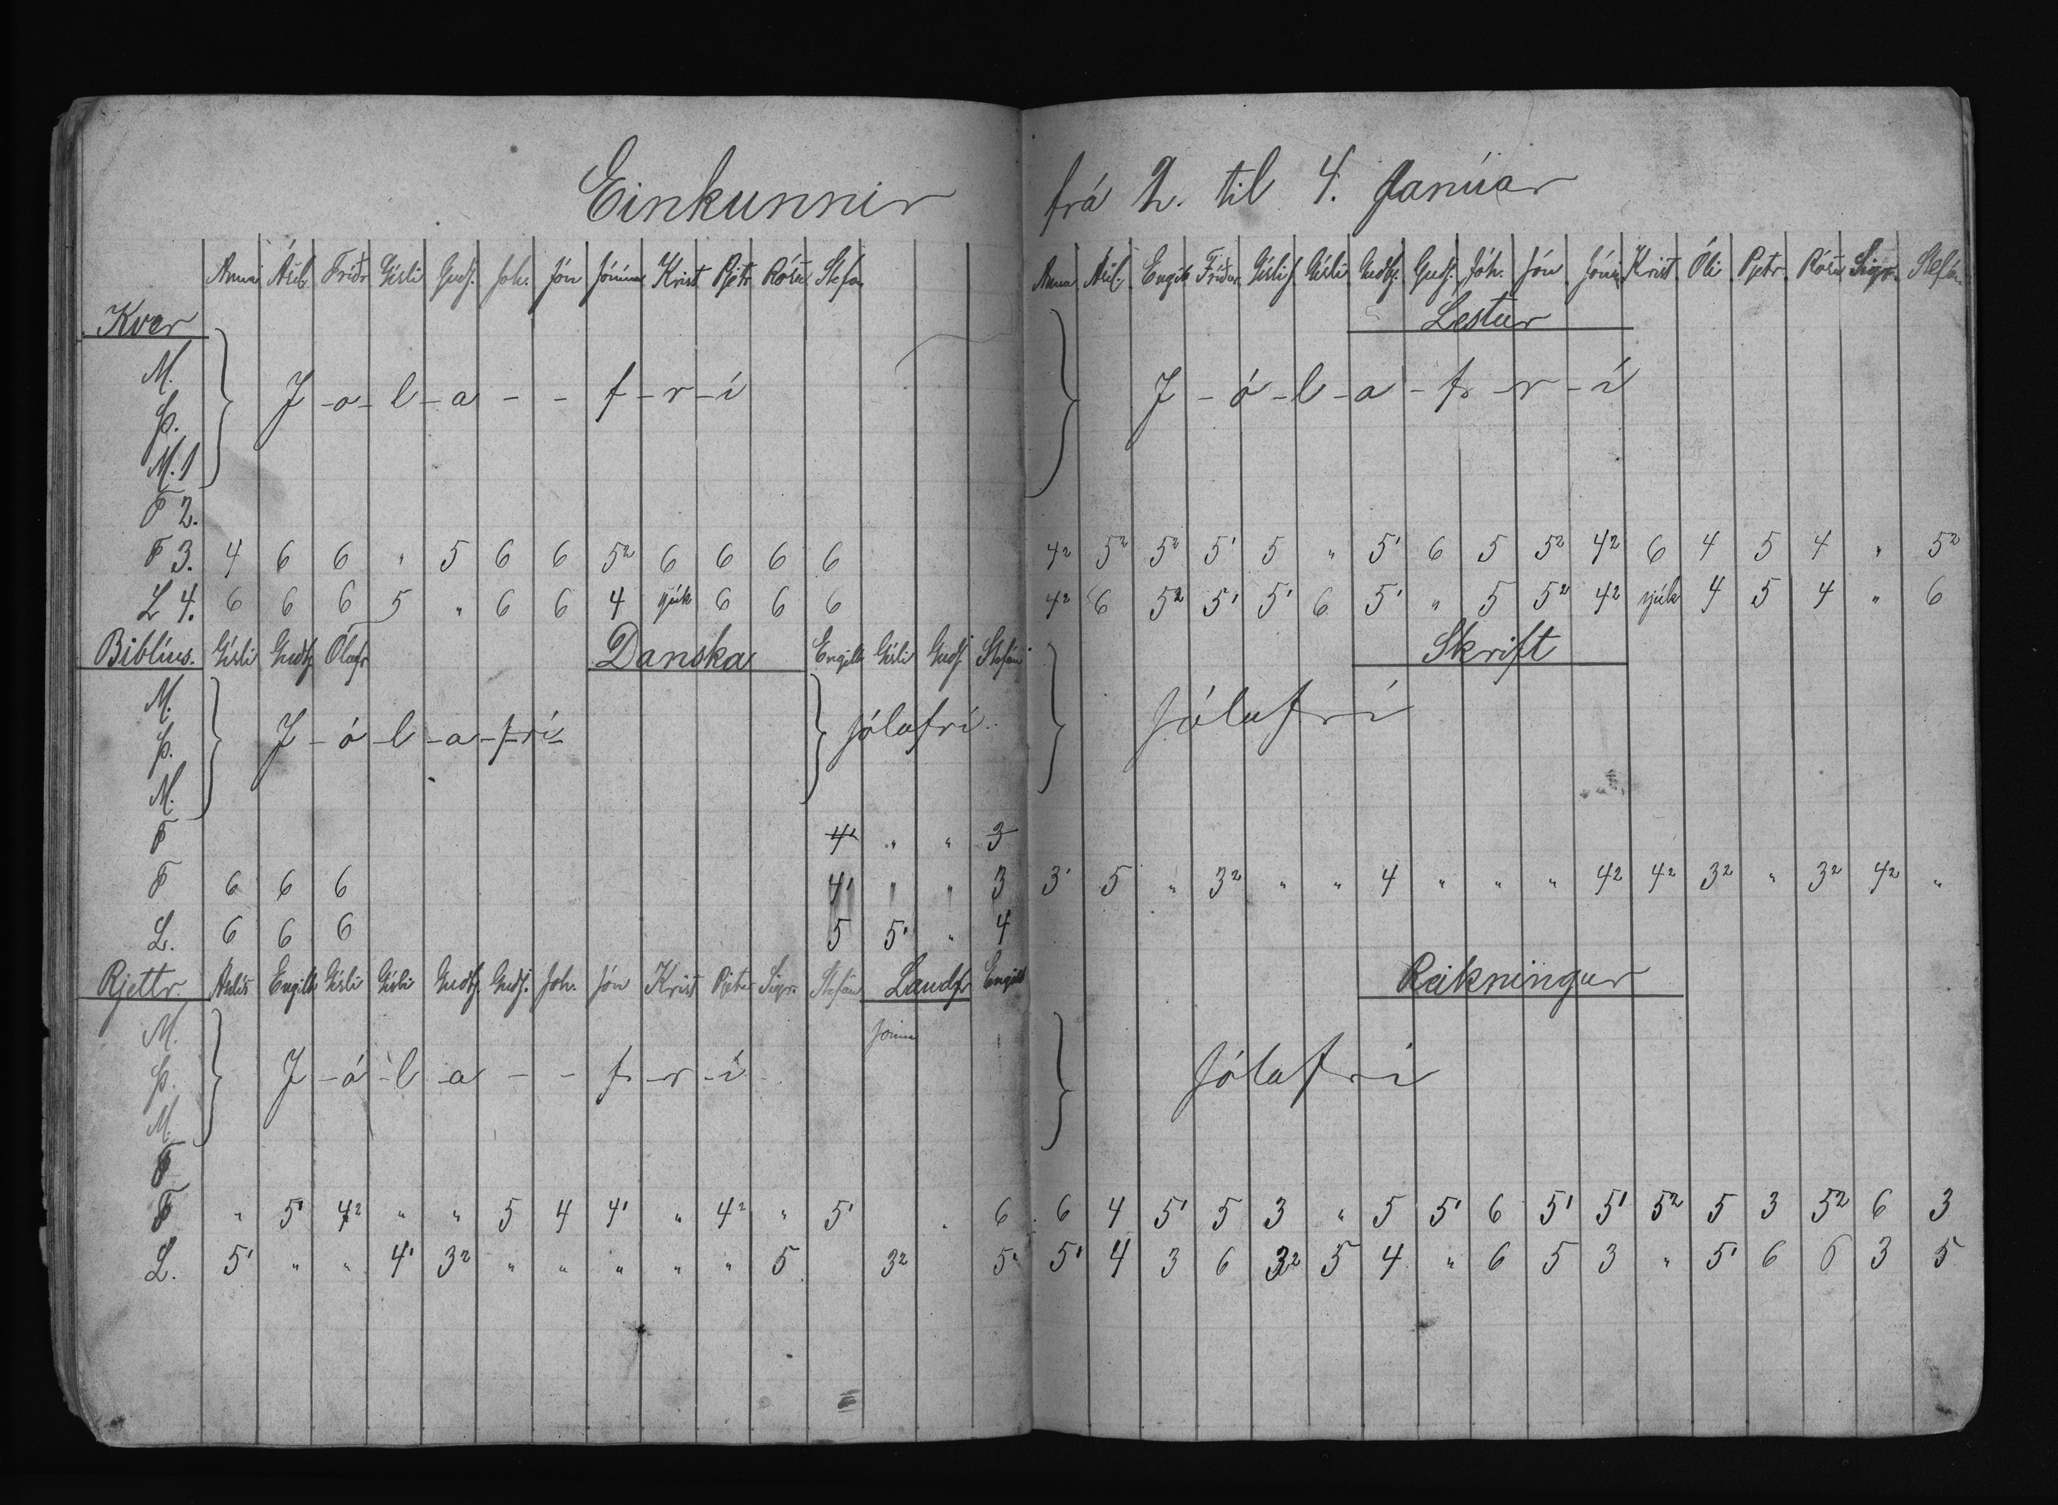 Einkunnir frá 2. til 4. Janúar
Anna Ásb. Friðr Gísli Guðj. Joh. Jón Jónína Krist Pjetr Rósa Stefán
Kver
M.
Þ. J-o-l-a - - f-r-í
M. 1
F 2.
F 3. 4 6 6 " 5 6 6 5² 6 6 6 6
L 4. 6 6 6 5 " 6 6 4 sjúk 6 6 6
Biblíus. Gísli Guðbj Ólafr Danska Engilb Gísli Guðj. Stefán
M.
Þ. J-ó-l-a-f-r-í- Jólafrí
M.
F 4¹ " " 3
F 6 6 6 4¹ " " 3
L. 6 6 6 5 5¹ " 4
Rjettr. Engilb Gísli Gísli Guðbj. Guðj. Joh. Jón Krist Pjetur Sigr. Stefán Landfr Engilb
Jónína
M.
Þ. J-ó-l-a - - f-r-í
M.
F
F " 5¹ 4² " " 5 4 4¹ " 4² " 5¹ " 6
L. 5¹ " " 4¹ 3² " " " " " 5 3² 5²
Anna Ásb. Engilb Friður Gísli J. Gísli Guðbj. Guðj. Jóh. Jón Jónína Krist Óli Pjetr. Rósa Sigr. Stefán
Lestur
J-ó-l-a-f-r-í
4² 5² 5² 5¹ 5 " 5¹ 6 5 5² 4² 6 4 5 4 " 5²
4² 6 5² 5¹ 5¹ 6 5¹ " 5 5² 4² sjúk 4 5 4 " 6
Skrift
Jólafrí
3¹ 5 " 3² " " 4 " " " 4² 4² 3² " 3² 4² "
Reikningur
Jólafrí
6 4 5¹ 5 3 " 5 5¹ 6 5¹ 5¹ 5² 5 3 5² 6 3
5¹ 4 3 6 3² 5 4 " 6 5 3 " 5¹ 6 6 3 5